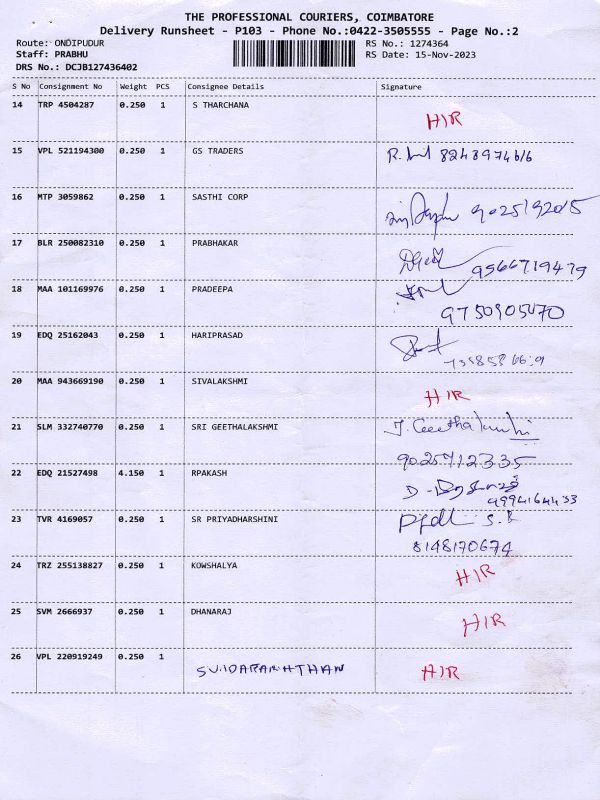 THE PROFESSIONAL COURIERS, COIMBATORE
Delivery Runsheet - P103 - Phone No.:0422-3505555 - Page No.:2
Route: ONDIPUDUR RS No.: 1274364
Staff: PRABHU RS Date: 15-Nov-2023
DRS No.: DCJB127436402
S No Consignment No Weight PCS Consignee Details Signature
14 TRP 4504287 0.250 1 S THARCHANA
HIR
15 VPL 521194300 0.250 1 GS TRADERS
16 MTP 3059862 0.250 1 SASTHI CORP
9025192015
17 BLR 250082310 0.250 1 PRABHAKAR
9566719479
18 MAA 101169976 0.250 1 PRADEEPA
9750905470
19 EDQ 25162043 0.250 1 HARIPRASAD
20 MAA 943669190 0.250 1 SIVALAKSHMI
HIR
21 SLM 332740770 0.250 1 SRI GEETHALAKSHMI
9025712335
22 EDQ 21527498 4.150 1 RPAKASH
9994164433
23 TVR 4169057 0.250 1 SR PRIYADHARSHINI
8148170674
24 TRZ 255138827 0.250 1 KOWSHALYA
HIR
25 SVM 2666937 0.250 1 DHANARAJ
HIR
26 VPL 220919249 0.250 1
HIR